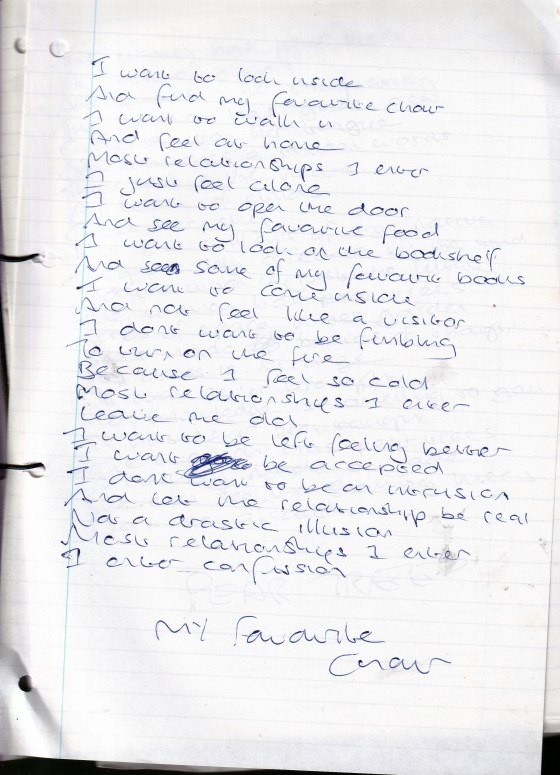 I want to look inside
And find my favourite chair
I want to walk in
And feel at home
Most relationships I enter
I just feel alone
I want to open the door
And see my favourite food
I want to look on the bookshelf
And see some of my favourite books
I want to come inside
And not feel like a visitor
I dont want to be fumbling
To turn on the fire
Because I feel so cold
Most relationships I enter
Leave me old
I want to be left feeling better
I want to be accepted
I dont want to be an intrusion
And let the relationship be real
Not a drastic illusion
Most relationships I enter
I enter confussion
My Favourite
Chair